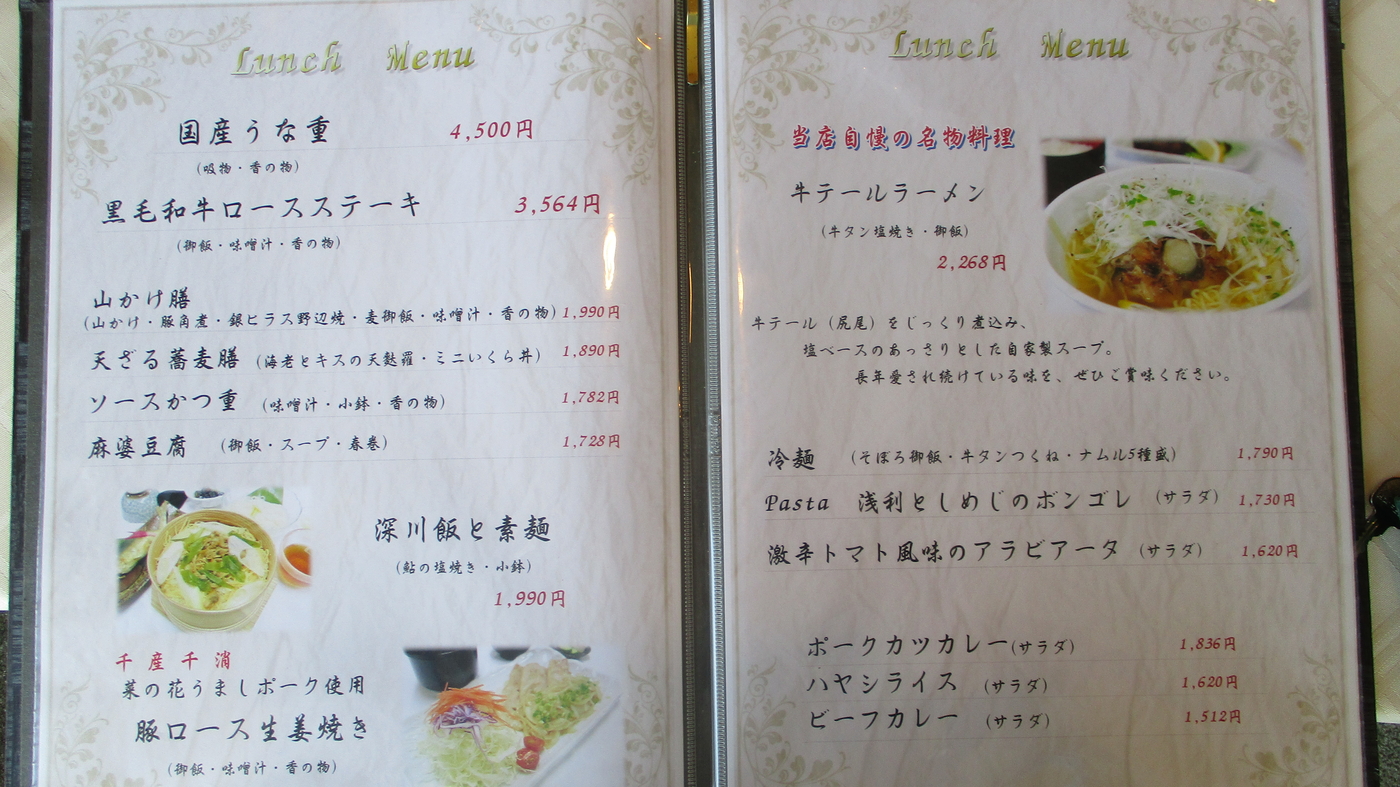 Lunch Menu
国産うな重 4,500円
(吸物・香の物)
黒毛和牛ロースステーキ 3,564円
(御飯・味噌汁・香の物)
山かけ膳
(山かけ・豚角煮・銀ヒラス野辺焼・麦御飯・味噌汁・香の物) 1,990円
天ざる蕎麦膳 (海老とキスの天麩羅・ミニいくら丼) 1,890円
ソースかつ重 (味噌汁・小鉢・香の物) 1,782円
麻婆豆腐 (御飯・スープ・春巻) 1,728円
深川飯と素麺
(鮎の塩焼き・小鉢)
1,990円
千産千消
菜の花うましポーク使用
豚ロース生姜焼き
(御飯・味噌汁・香の物)
Lunch Menu
当店自慢の名物料理
牛テールラーメン
(牛タン塩焼き・御飯)
2,268円
牛テール（尻尾）をじっくり煮込み、
塩ベースのあっさりとした自家製スープ。
長年愛され続けている味を、ぜひご賞味ください。
冷麺 (そぼろ御飯・牛タンつくね・ナムル5種盛) 1,790円
Pasta 浅利としめじのボンゴレ (サラダ) 1,730円
激辛トマト風味のアラビアータ (サラダ) 1,620円
ポークカツカレー(サラダ) 1,836円
ハヤシライス (サラダ) 1,620円
ビーフカレー (サラダ) 1,512円